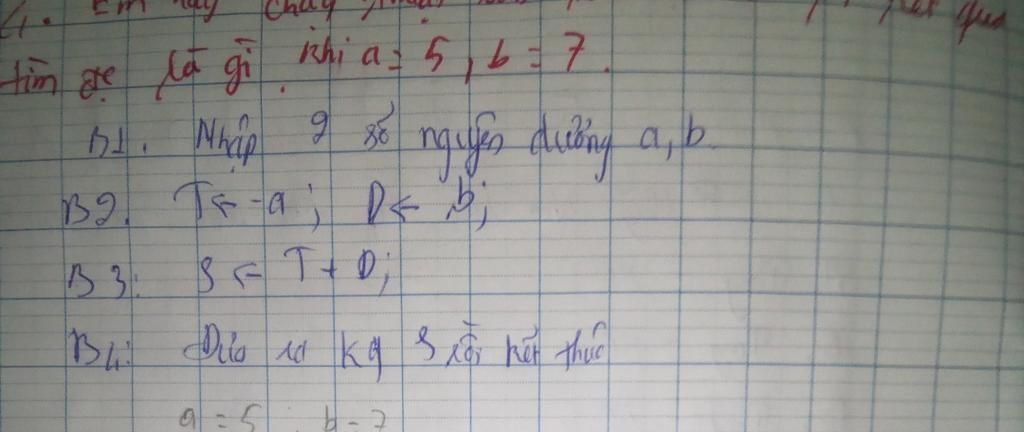 4. Em hãy chạy
quả
tìm đc là gì khi a = 5, b = 7.
B1. Nhập 2 số nguyên dương a, b.
B2. T ← -a ; D ← b;
B3: S ← T + D;
B4: Đưa ra kq S rồi kết thúc
a = 5 b = 7